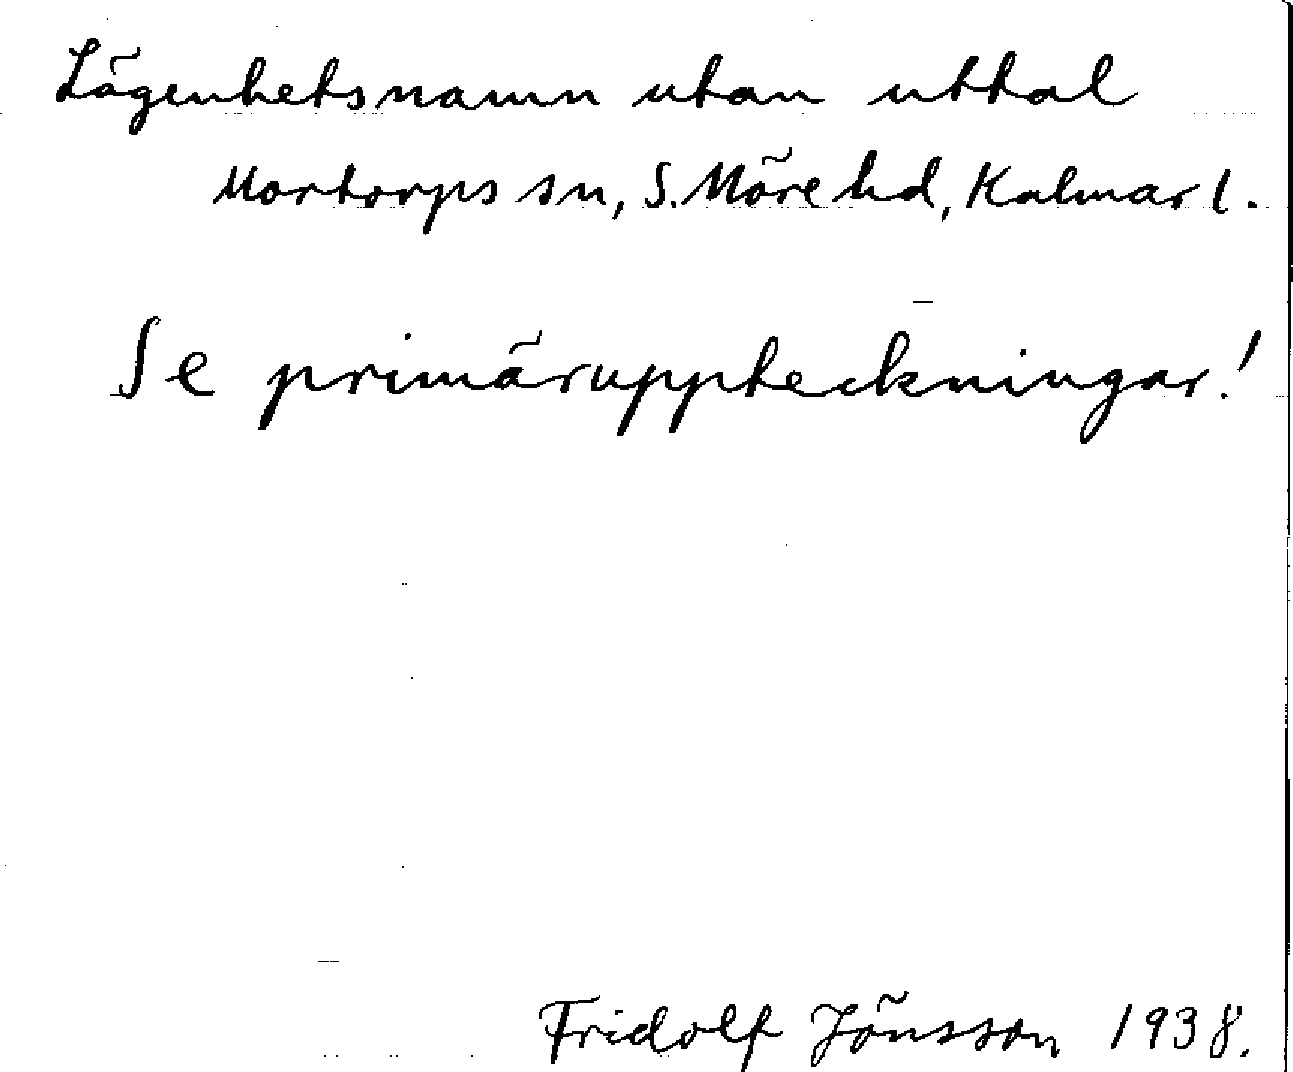 Lägenhetsnamn utan uttal
Mortorps sn, S. Möre hd, Kalmar l.
Se primäruppteckningar!
Fridolf Jönsson 1938.